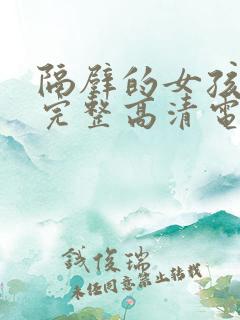 隔壁的女孩
完整高清电
钱俊瑞
未经同意禁止转载